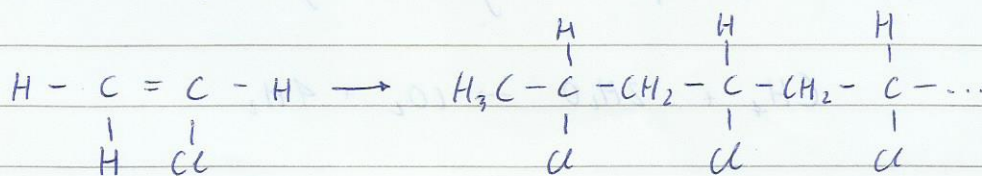 H H H
H - C = C - H ⟶ H₃C - C - CH₂ - C - CH₂ - C - ...
H Cl Cl Cl Cl